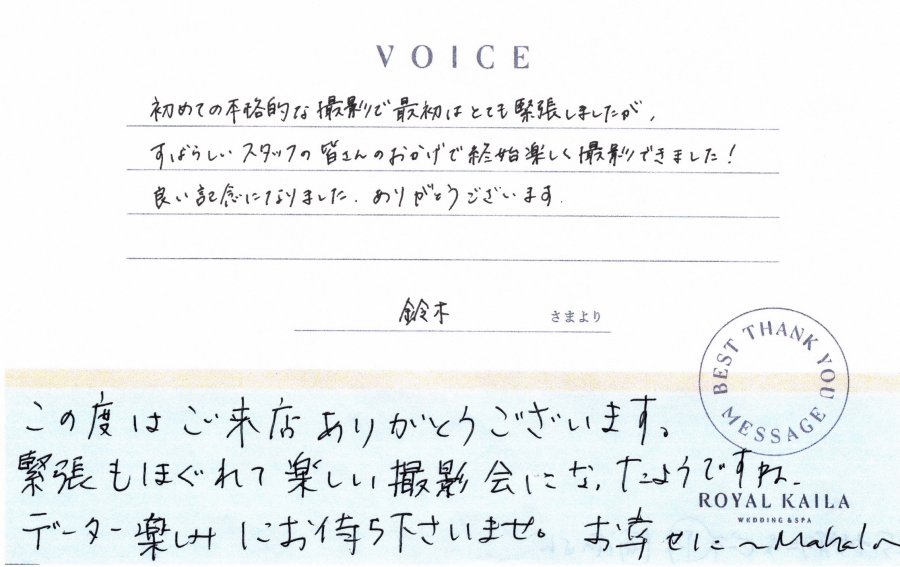 VOICE
初めての本格的な撮影で最初はとても緊張しましたが、
すばらしいスタッフの皆さんのおかげで終始楽しく撮影できました!
良い記念になりました。ありがとうございます。
鈴木 さまより
BEST THANK YOU MESSAGE
この度はご来店ありがとうございます。
緊張もほぐれて楽しい撮影会になったようですね。
ROYAL KAILA
WEDDING & SPA
データー楽しみにお待ち下さいませ。お幸せに~Mahalo~